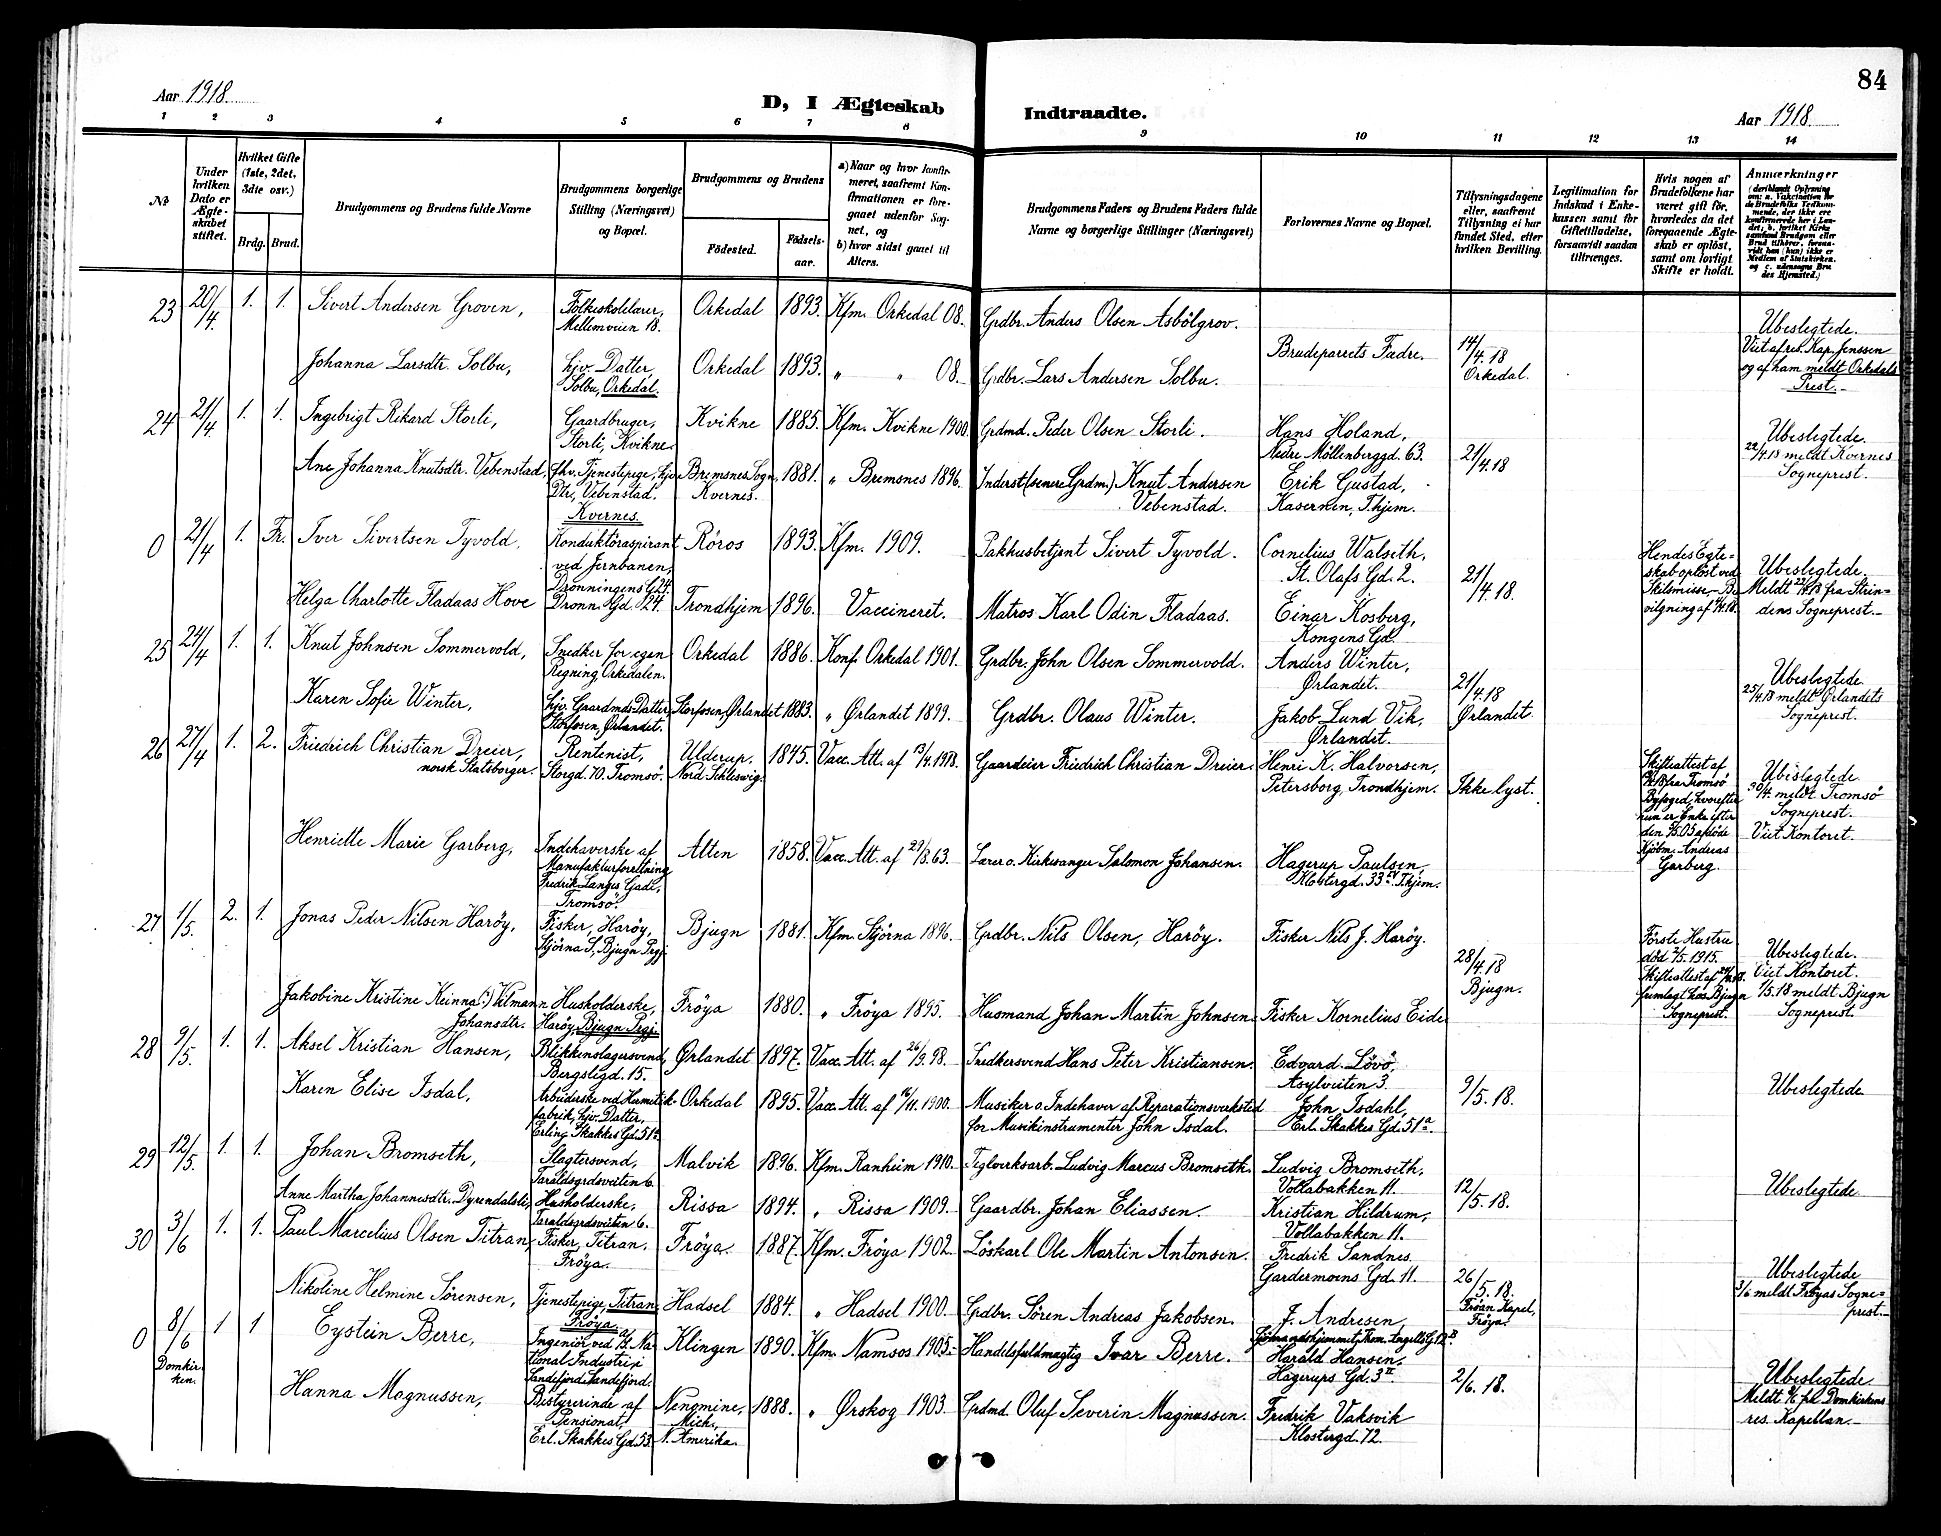 84
Aar 1918.
D, I Ægteskab
Indtraadte.
Aar 1918.
1 2 3 4 5 6 7 8 9 10 11 12 13 14
№
Under
hvilken
Dato er
Ægte-
skabet
stiftet.
Hvilket Gifte
(1ste, 2det,
3die osv.)
Brdg. Brud.
Brudgommens og Brudens fulde Navne
Brudgommens borgerlige
Stilling (Næringsvei)
og Bopæl.
Brudgommens og Brudens
Fødested.
Fødsels-
aar.
a) Naar og hvor konfir-
meret, saafremt Kon-
firmationen er fore-
gaaet udenfor Sog-
net, og
b) hvor sidst gaaet til
Alters.
Brudgommens Faders og Brudens Faders fulde
Navne og borgerlige Stillinger (Næringsvei)
Forlovernes Navne og Bopæl.
Tillysningsdagene
eller, saafremt
Tillysning ei har
fundet Sted, efter
hvilken Bevilling.
Legitimation for
Indskud i Enke-
kassen samt for
Giftetilladelse,
forsaavidt saadan
tiltrænges.
Hvis nogen af
Brudefolkene har
været gift før,
hvorledes da det
foregaaende Ægte-
skab er opløst,
samt om lovligt
Skifte er holdt.
Anmærkninger
23 20/4. 1. 1. Sivert Andersen Groven,
Folkeskolelærer,
Mellemveien 18.
Orkedal 1893. Kfm. Orkedal 08. Grdbr. Anders Olsen Asbölgrov.
Johanna Larsdtr. Solbu,
hjv. Datter,
Solbu, Orkedal.
Orkedal 1893. " " 08. Grdbr. Lars Andersen Solbu.
Brudeparrets Fædre.
14/4.18
Orkedal.
Ubeslegtede.
Viet af res. Kap. Jenssen
og af ham meldt Orkedals
Prest.
24 21/4. 1. 1. Ingebrigt Rikard Storli,
Gaardbruger,
Storli, Kvikne.
Kvikne 1885. Kfm. Kvikne 1900. Grdmd. Peder Olsen Storli.
Hans Holand,
Nedre Möllenberggd. 63.
Ane Johanna Knutsdtr. Vebenstad,
fhv. Tjenestepige, hjv.
Dtr., Vebenstad.
Kvernes.
Bremsnes Sogn,
Kvernes.
1881. " Bremsnes 1896. Inderst (senere Grdm.) Knut Andersen
Vebenstad.
Erik Gustad,
Kasernen, T.hjem.
21/4.18
Ubeslegtede.
22/4.18 meldt Kvernes
Sogneprest.
0 21/4 1. Fr. Iver Sivertsen Tyvold.
Konduktöraspirant
ved Jernbanen,
Dronningens G. 24.
Röros 1893. Kfm. 1909. Pakhusbetjent Sivert Tyvold.
Cornelius Walseth,
St. Olafs Gd. 2.
Helga Charlotte Fladaas Hove
Dronn. Gd. 24.
Trondhjem 1896. Vaccineret. Matros Karl Odin Fladaas.
Einar Kosberg,
Kongens Gd.
21/4.18.
Hendes Egte-
skab oplöst ved
Skilsmisse-Be-
vilgning af 4/4.18.
Ubeslegtede.
Meldt 22/4.18 fra Strin-
dens Sogneprest.
25 24/4 1. 1. Knut Johnsen Sommervold,
Snedker for egen
Regning, Orkedalen.
Orkedal 1886. Konf. Orkedal 1901. Grdbr. John Olsen Sommervold.
Anders Winter,
Ørlandet.
Karen Sofie Winter,
hjv. Gaardmds Datter
Storfosen, Ørlandet.
Storfosen, Ørlandet 1883. " Ørlandet 1899. Grdbr. Olaus Winter.
Jakob Lund Vik,
Ørlandet.
21/4.18
Ørlandet
Ubeslegtede.
25/4.18 meldt Ørlandets
Sogneprest.
26 27/4 1. 2. Friedrich Christian Dreier,
norsk Statsborger.
Rentenist,
Storgd. 70. Tromsö.
Ulderup.
Nord Schleswig.
1845. Vacc. Att. af 13/4.1918. Gaardeier Friedrich Christian Dreier.
Henri K. Halvorsen,
Petersborg, Trondhjem.
Ikke lyst.
Henriette Marie Garberg,
Indehaverske af
Manufakturforretning
Fredrik Langes Gade,
Tromsö.
Alten 1858. Vacc. Att. af 29/8.63. Lærer o. Kirkesanger Salomon Johansen.
Hagerup Paulsen,
Klostergd. 33 IV T.hjem.
Skifteattest af
fra Tromsö
Byfoged, hvorefter
hun er Enke efter
den 05 afdöde
Kjöbm. Andreas
Garberg.
Ubeslegtede
30/4. meldt Tromsö
Sogneprest.
Viet Kontoret.
27 1/5. 2. 1. Jonas Peder Nilsen Haröy,
Fisker, Haröy,
Stjörna S., Bjugn Prgj.
Bjugn 1881. Kfm. Stjörna 1896. Grdbr. Nils Olsen, Haröy.
Fisker Nils J. Haröy.
Jakobine Kristine Keinna (?) Vilmann
Johansdtr.
Husholderske,
Haröy, Bjugn Prgj.
Fröya 1880. " Fröya 1895. Husmand Johan Martin Johnsen.
Fisker Kornelius Eide
28/4.18
Bjugn.
Förste Hustru
död 2/5.1915.
Skifteattest af
fremlagt hos Bjugn
Sogneprest.
Ubeslegtede.
Viet Kontoret.
1/5.18 meldt Bjugn
Sogneprest.
28 9/5. 1. 1. Aksel Kristian Hansen,
Blikkenslagersvend,
Bergsligd. 15.
Ørlandet 1897. Vacc. Att. af 26/9.98. Snedkersvend Hans Peter Kristiansen.
Edvard Lövö,
Asylveiten 3.
Karen Elise Isdal,
Arbeiderske ved Hermetik-
fabrik, hjv. Datter,
Erling Skakkes Gd. 51a.
Orkedal 1895. Vacc. Att. af 16/11.1900. Musiker o. Indehaver af Reparationsverksted
for Musikinstrumenter John Isdal.
John Isdahl,
Erl. Skakkes Gd. 51a.
9/5.18.
Ubeslegtede.
29 12/5. 1. 1. Johan Bromseth,
Slagtersvend,
Taraldsgrdsveiten 6.
Malvik 1896. Kfm. Ranheim 1910. Teglverksarb. Ludvig Marcus Bromseth.
Ludvig Bromseth,
Vollabakken 11.
Anne Martha Johannesdtr. Dyrendalsli,
Husholderske,
Taraldsgrdsveiten 6.
Rissa 1894. " Rissa 1909. Gaardbr. Johan Eliassen.
Kristian Hildrum,
Vollabakken 11.
12/5.18.
Ubeslegtede
30 3/6 1. 1. Paul Marcelius Olsen Titran,
Fisker, Titran,
Fröya.
Fröya. 1887. Kfm. Fröya 1902. Löskarl Ole Martin Antonsen.
Fredrik Sandnes,
Gardermoens Gd. 11.
Nikoline Helmine Sörensen,
Tjenestepige, Titran
Fröya.
Hadsel 1884. " Hadsel 1900. Grdbr. Sören Andreas Jakobsen.
J. Andresen,
26/5.18.
Fröan Kapel,
Fröya.
Ubeslegtede
3/6 meldt Fröyas Sogne-
prest.
0 8/6 1 1 Eystein Berre,
Domkir-
ken.
Ingeniör ved Na-
tional Industri i
Sandefjord, Sandefjord.
Klingen 1890. Kfm. Namsos 1905. Handelsfuldmægtig Ivar Berre.
Harald Hansen,
Hagerups Gd. 3 II.
Hanna Magnussen,
Bestyrerinde af
Pensionat,
Erl. Skakkes Gd. 53.
Nenomine,
Mich.,
N. Amerika.
1888. " Ørskog 1903. Grdmd. Oluf Severin Magnussen.
Fredrik Vaksvik
Klostergd. 72.
2/6.18.
Ubeslegtede
Meldt fra Domkirkens
res. Kapellan.